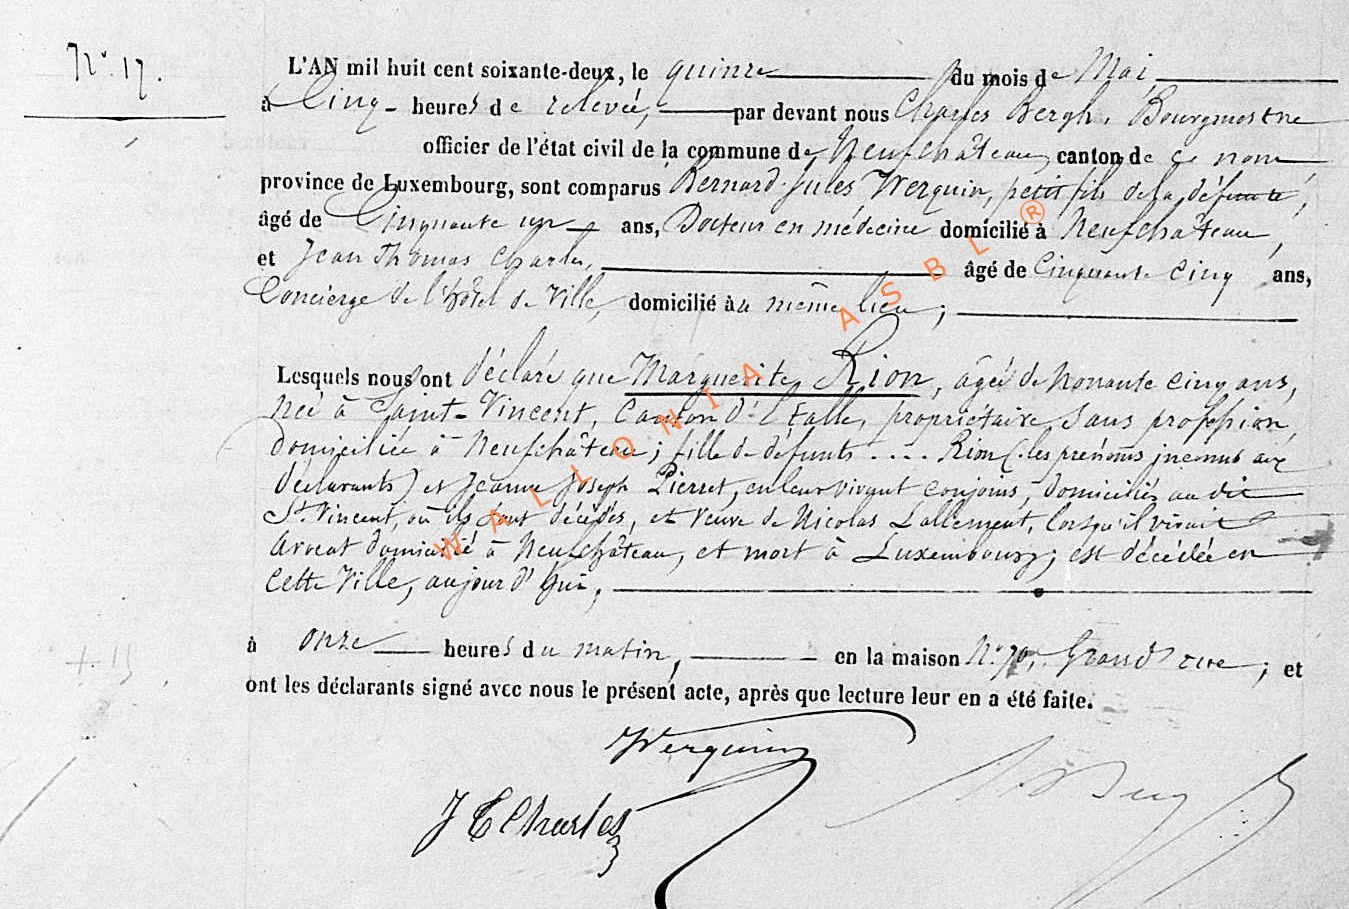 N° 17.
L'AN mil huit cent soixante-deux, le quinze du mois de Mai,
à Cinq heures de relevée, par devant nous Charles Bergh, Bourgmestre
officier de l'état civil de la commune de Neufchâteau, canton de ce nom
province de Luxembourg, sont comparus Bernard Jules Werquin, petit fils de la défunte,
âgé de Cinquante un ans, Docteur en médecine domicilié à Neufchâteau,
et Jean Thomas Charles, âgé de Cinquante cinq ans,
Concierge de l'hôtel de Ville, domicilié au même lieu;
Lesquels nous ont déclaré que Marguerite Rion, âgée de Nonante cinq ans,
Née à Saint-Vincent, Canton d'Etalle, propriétaire, sans profession,
domiciliée à Neufchâteau; fille de défunts .... Rion (les prénoms inconnus aux
déclarants) et Jeanne Joseph Pierret, en leur vivant conjoints, domiciliés au dit
St. Vincent, où ils sont décédés, et veuve de Nicolas Lallement, lorsqu'il vivait
avocat domicilié à Neufchâteau, et mort à Luxembourg; est décédée en
cette Ville, aujourd'hui,
à onze heures du matin, en la maison N° 70, Grand'rue; et
ont les déclarants signé avec nous le présent acte, après que lecture leur en a été faite.
Werquin
J T Charles
WALLONIA ASBL ®